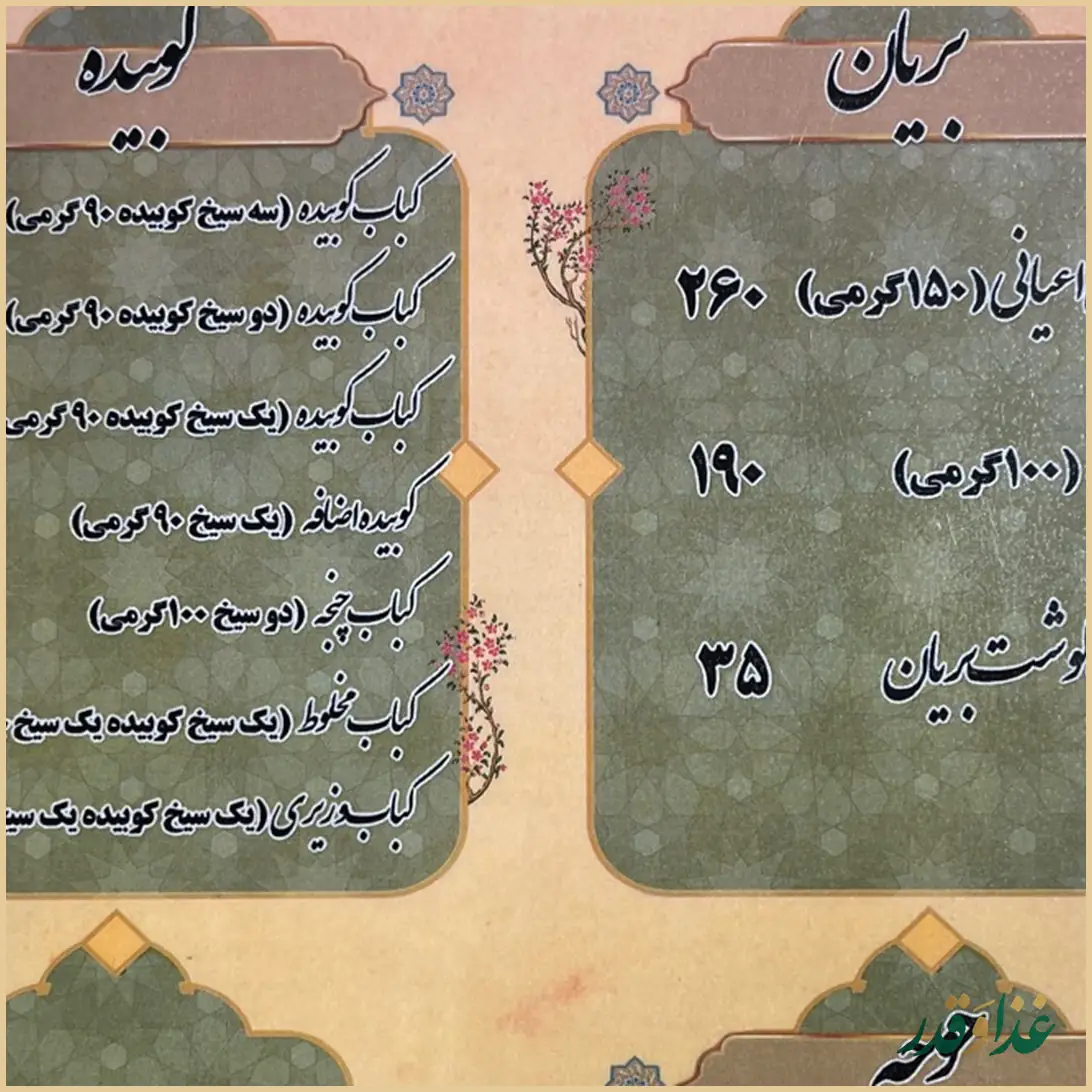 بریان
اعیانی (۱۵۰گرمی) ۲۶۰
(۱۰۰گرمی) ۱۹۰
بریان ۳۵
کوبیده
کباب کوبیده (سه سیخ کوبیده ۹۰ گرمی)
کباب کوبیده (دو سیخ کوبیده ۹۰ گرمی)
کباب کوبیده (یک سیخ کوبیده ۹۰ گرمی
کوبیده اضافه (یک سیخ ۹۰ گرمی)
کباب چنجه (دو سیخ ۱۰۰گرمی)
کباب مخلوط (یک سیخ کوبیده یک سیخ
کباب وزیری (یک سیخ کوبیده یک
غذا و قدر